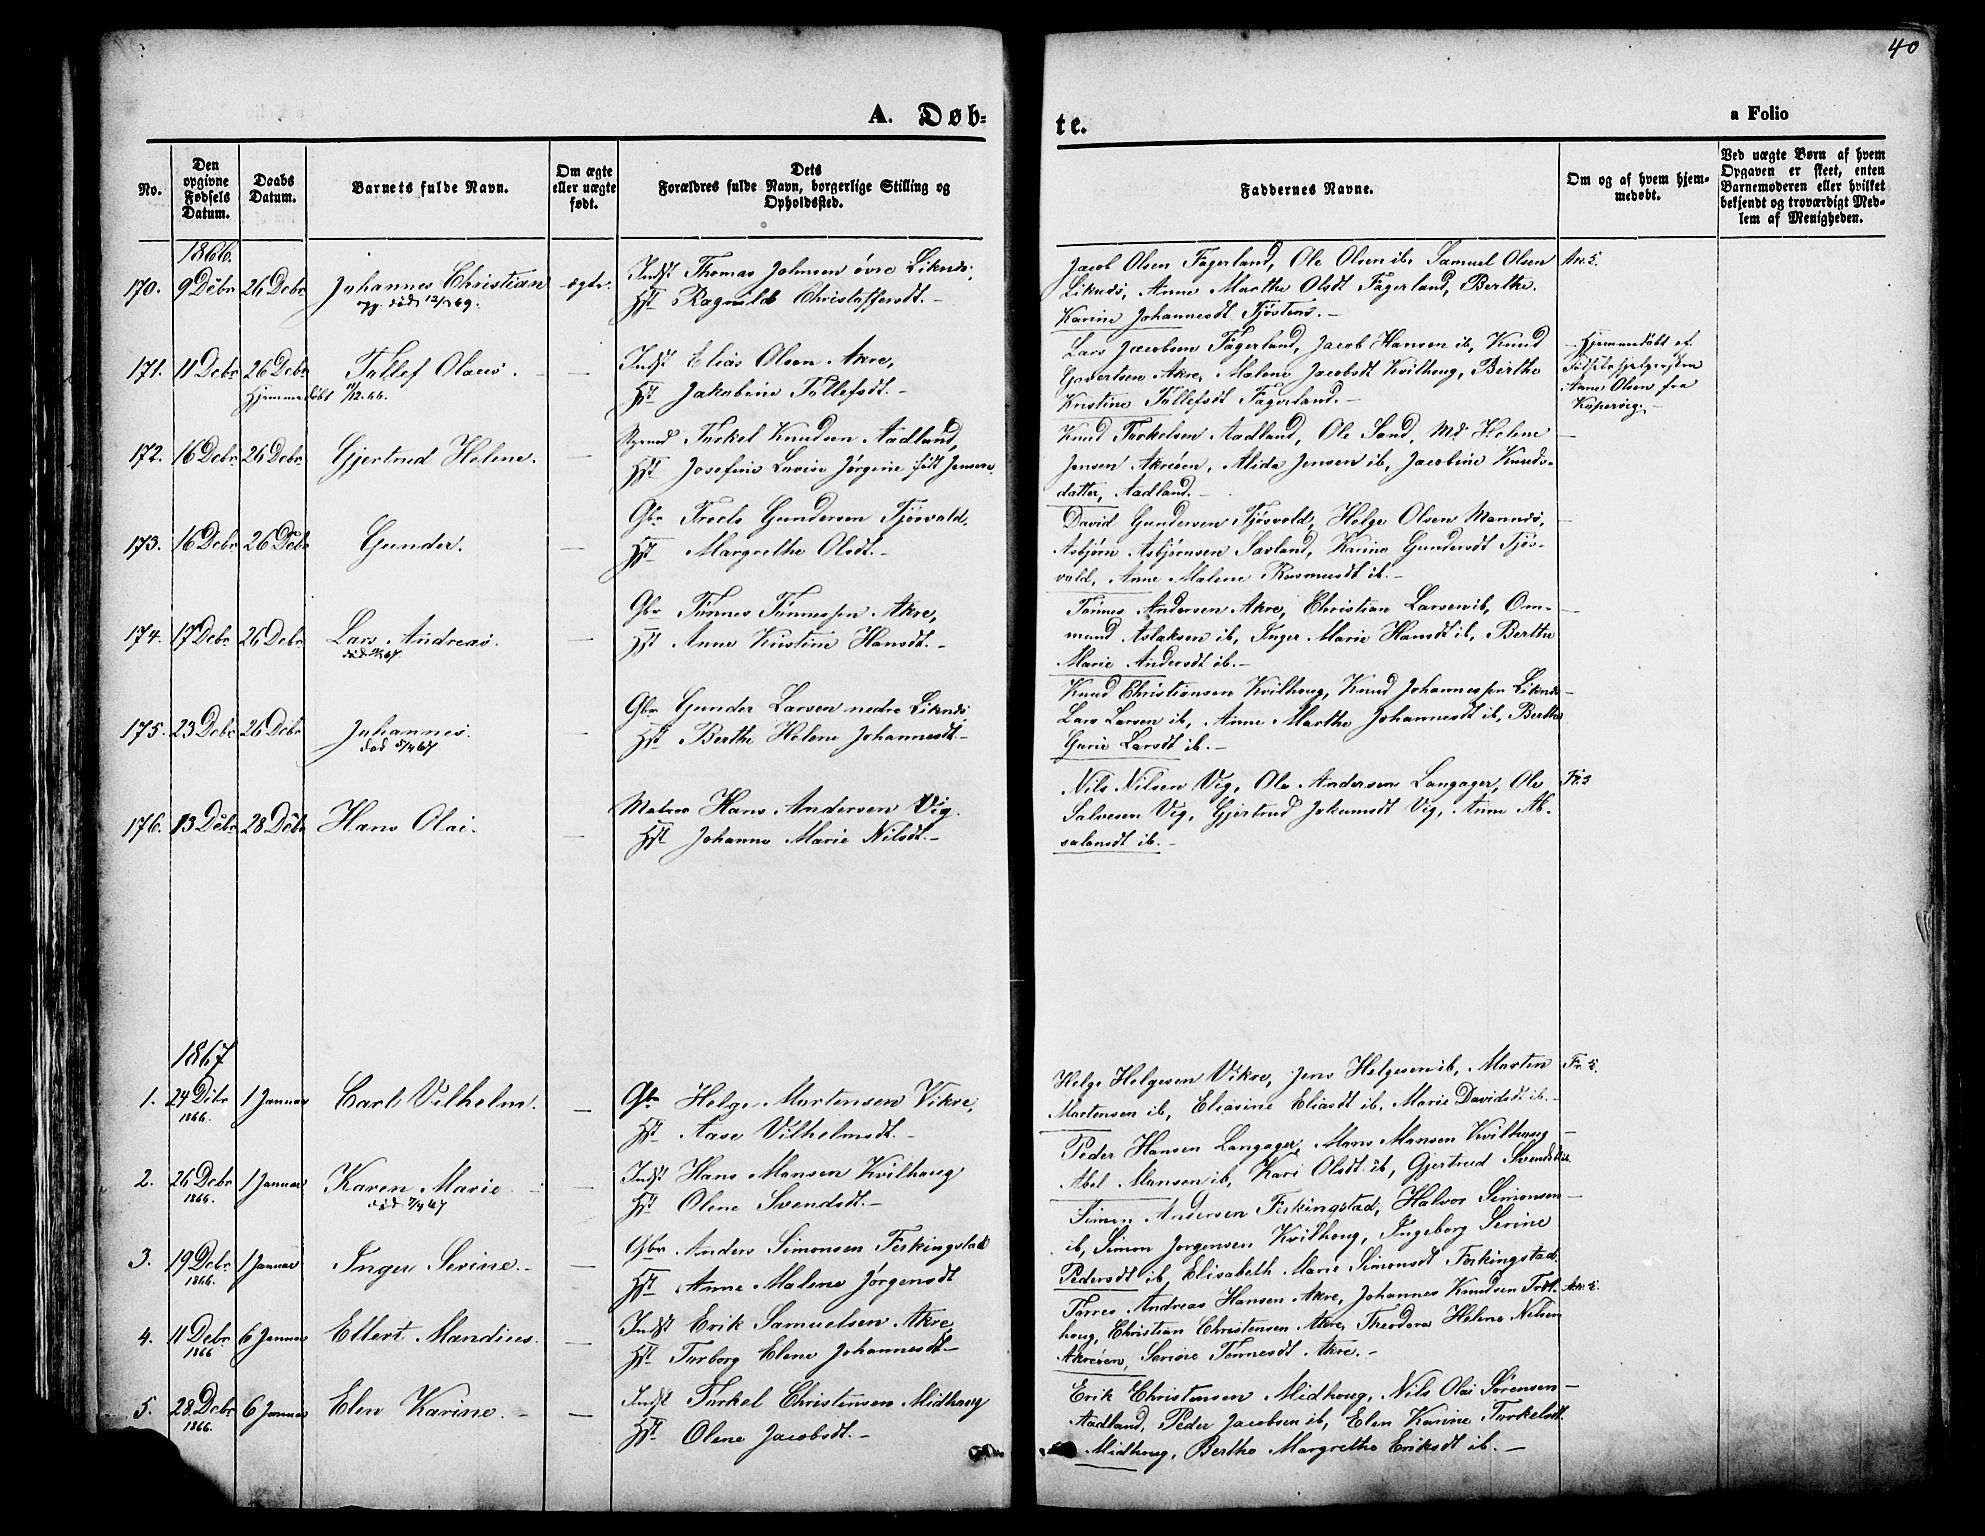 40
A. Døb-
te.
a Folio
No.
Den opgivne Fødsels Datum.
Daabs Datum.
Barnets fulde Navn.
Om ægte eller uægte født.
Dets Forældres fulde Navn, borgerlige Stilling og Opholdssted.
Faddernes Navne.
Om og af hvem hjem-
medøbt.
Ved uægte Børn af hvem
Opgaven er skeet, enten
Barnemoderen eller hvilket
bekjendt og troværdigt Med-
lem af Menigheden.
1866.
170. 9 Debr 26 Debr Johannes Christian ægte.
Indst Thomas Johnsen øvre Liknes,
Hst Ragnilde Christaffersdt.-
Jacob Olsen Fagerland, Ole Olsen ib, Samuel Olsen
Liknes, Anne Marthe Olsdt Fagerland, Berthe
Karine Johannesdt Tjøstens.-
171. 11 Debr 26 Debr Tollef Olaus. -
Hjemmedøbt 11/12.66.
Indst Elias Olsen Akre,
Hst Jakobine Tollefsdt.-
Lars Jacobsen Fagerland, Jacob Hansen ib, Knud
Govertsen Akre, Malene Jacobsdt Kvilhoug, Berthe
Kristine Tollefsdt Fagerland.-
Hjemmedøbt af
Anne Olsen fra
Kopervig.-
172. 16 Debr 26 Debr Gjertrud Helene. -
Torkel Knudsen Aadland,
Hst Josefine Lovise Jørgine født Jensen.
Knud Torkelsen Aadland, Ole Sand, Md Helene
Jensen Akreøen, Alida Jensen ib, Jacobine Knuds-
datter, Aadland.-
173. 16 Debr 26 Debr Gunder. -
Gbr Troels Gundersen Tjøsvold.
Hst Margrethe Olsdt.-
David Gundersen Tjøsvold, Helge Olsen Mannes,
Asbjørn Asbjørnsen Sævland, Karine Gundersdt Tjøs-
vold, Anne Malene Rasmusdt ib.-
174. 17 Debr 26 Debr Lars Andreas. -
Gbr Tønnes Tønnessen Akre,
Hst Anne Kristine Hansdt.-
Tønnes Andersen Akre, Christian Larsen ib, Om-
mund Aslaksen ib, Inger Marie Hansdt ib, Berthe
Marie Andersdt ib.-
175. 23 Debr 26 Debr Johannes.
død 5/4 67
Gbr Gunder Larsen nedre Liknes,
Hst Berthe Helene Johannesdt.-
Knud Christiansen Kvilhoug, Knud Johannessen Liknes
Lars Larsen ib, Anne Marthe Johannesdt ib, Berthe
Gurie Larsdt ib.-
176. 13 Debr 28 Debr Hans Olai. -
Matros Hans Andersen Vig.
Hst Johanne Marie Nilsdt.-
Nils Nilsen Vig, Ole Andersen Langager, Ole
Salvesen Vig, Gjertrud Johannsdt Vig, Anne Ab-
salonsdt ib.-
1867
1. 24 Debr 1866. 1 Januar Carl Vilhelm. -
Gbr Helge Mortensen Vikre,
Hst Aase Vilhelmsdt.-
Helge Helgesen Vikre, Jens Helgesen ib, Morten
Mortensen ib, Eliasine Eliasdt ib, Marie Davidsdt ib.-
2. 26 Debr 1866. 1 Januar Karen Marie. -
Indst Hans Monsen Kvilhaug
Hst Olene Svendsdt.-
Peder Hansen Langager, Mons Monsen Kvilhoug
Abel Monsen ib, Kari Olsdt ib, Gjertrud Svendsdt ib.
3. 19 Debr 1866. 1 Januar Inger Serine. -
Gbr Anders Simonsen Ferkingstad
Hst Anne Malene Jørgensdt
Simon Andersen Ferkingstad, Halvor Simonsen
ib, Simon Jørgensen Kvilhoug, Ingeborg Serine
Pedersdt ib, Elisabeth Marie Simonsdt Ferkingstad.
4. 11 Debr 1866 6 Januar Ellert Mandius. -
Indst Erik Samuelsen Akre,
Hst Torborg Elene Johannesdt-
Torres Andreas Hansen Akre, Johannes Knudsen
houg, Christian Christensen Akre, Theodora Helene Nilsen
Akreøen, Serine Tørresdt Akre.-
5. 28 Debr 1866. 6 Januar Elen Karine. -
Indst Torkel Christensen Midhoug
Hst Olene Jacobsdt.-
Erik Christensen Midhoug, Nils Olai Sørensen
Aadland, Peder Jacobsen ib, Elen Karine Torkelsdt
Midhoug, Berthe Margrethe Eriksdt ib.-